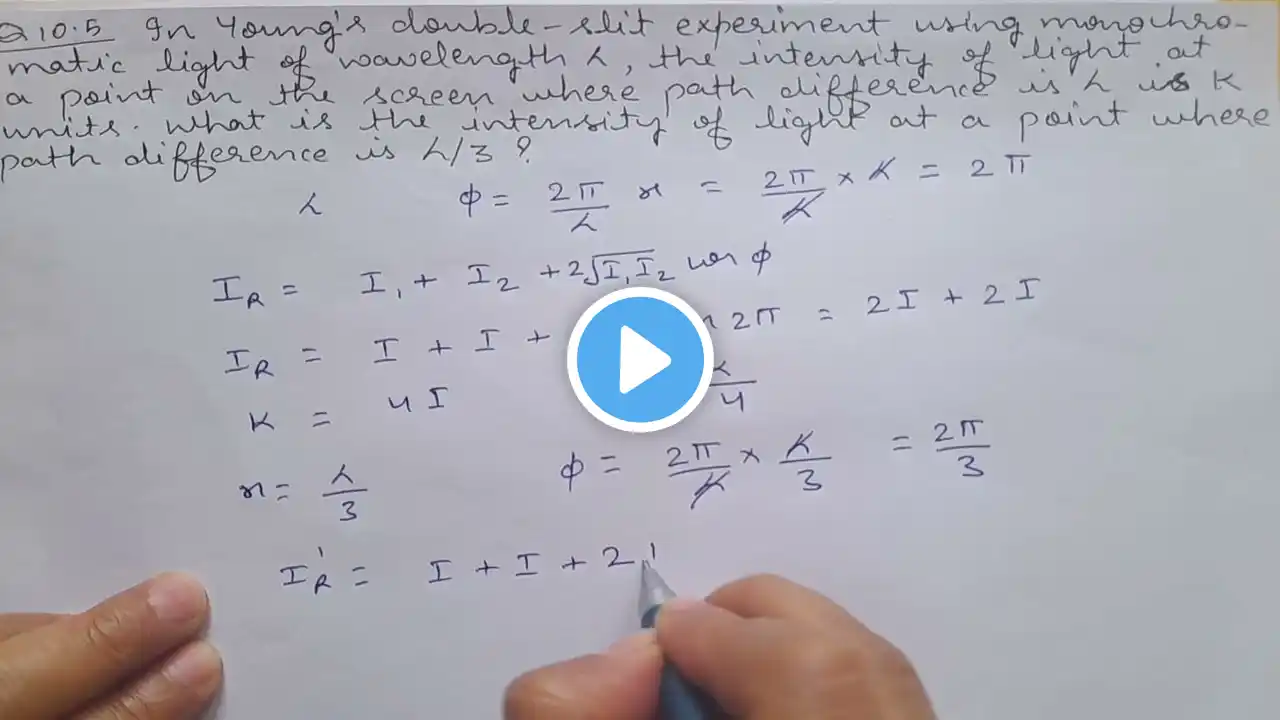 Q 10.5 In Young's double-slit experiment using monochro-
matic light of wavelength λ, the intensity of light at
a point on the screen where path difference is λ is K
units. What is the intensity of light at a point where
path difference is λ/3 ?
λ ϕ = 2π/λ x = 2π/λ × λ = 2π
I_R = I₁ + I₂ + 2√I₁I₂ cos ϕ
I_R = I + I + 2π = 2I + 2I
K = 4I /4
x = λ/3 ϕ = 2π/λ × λ/3 = 2π/3
I'_R = I + I + 2